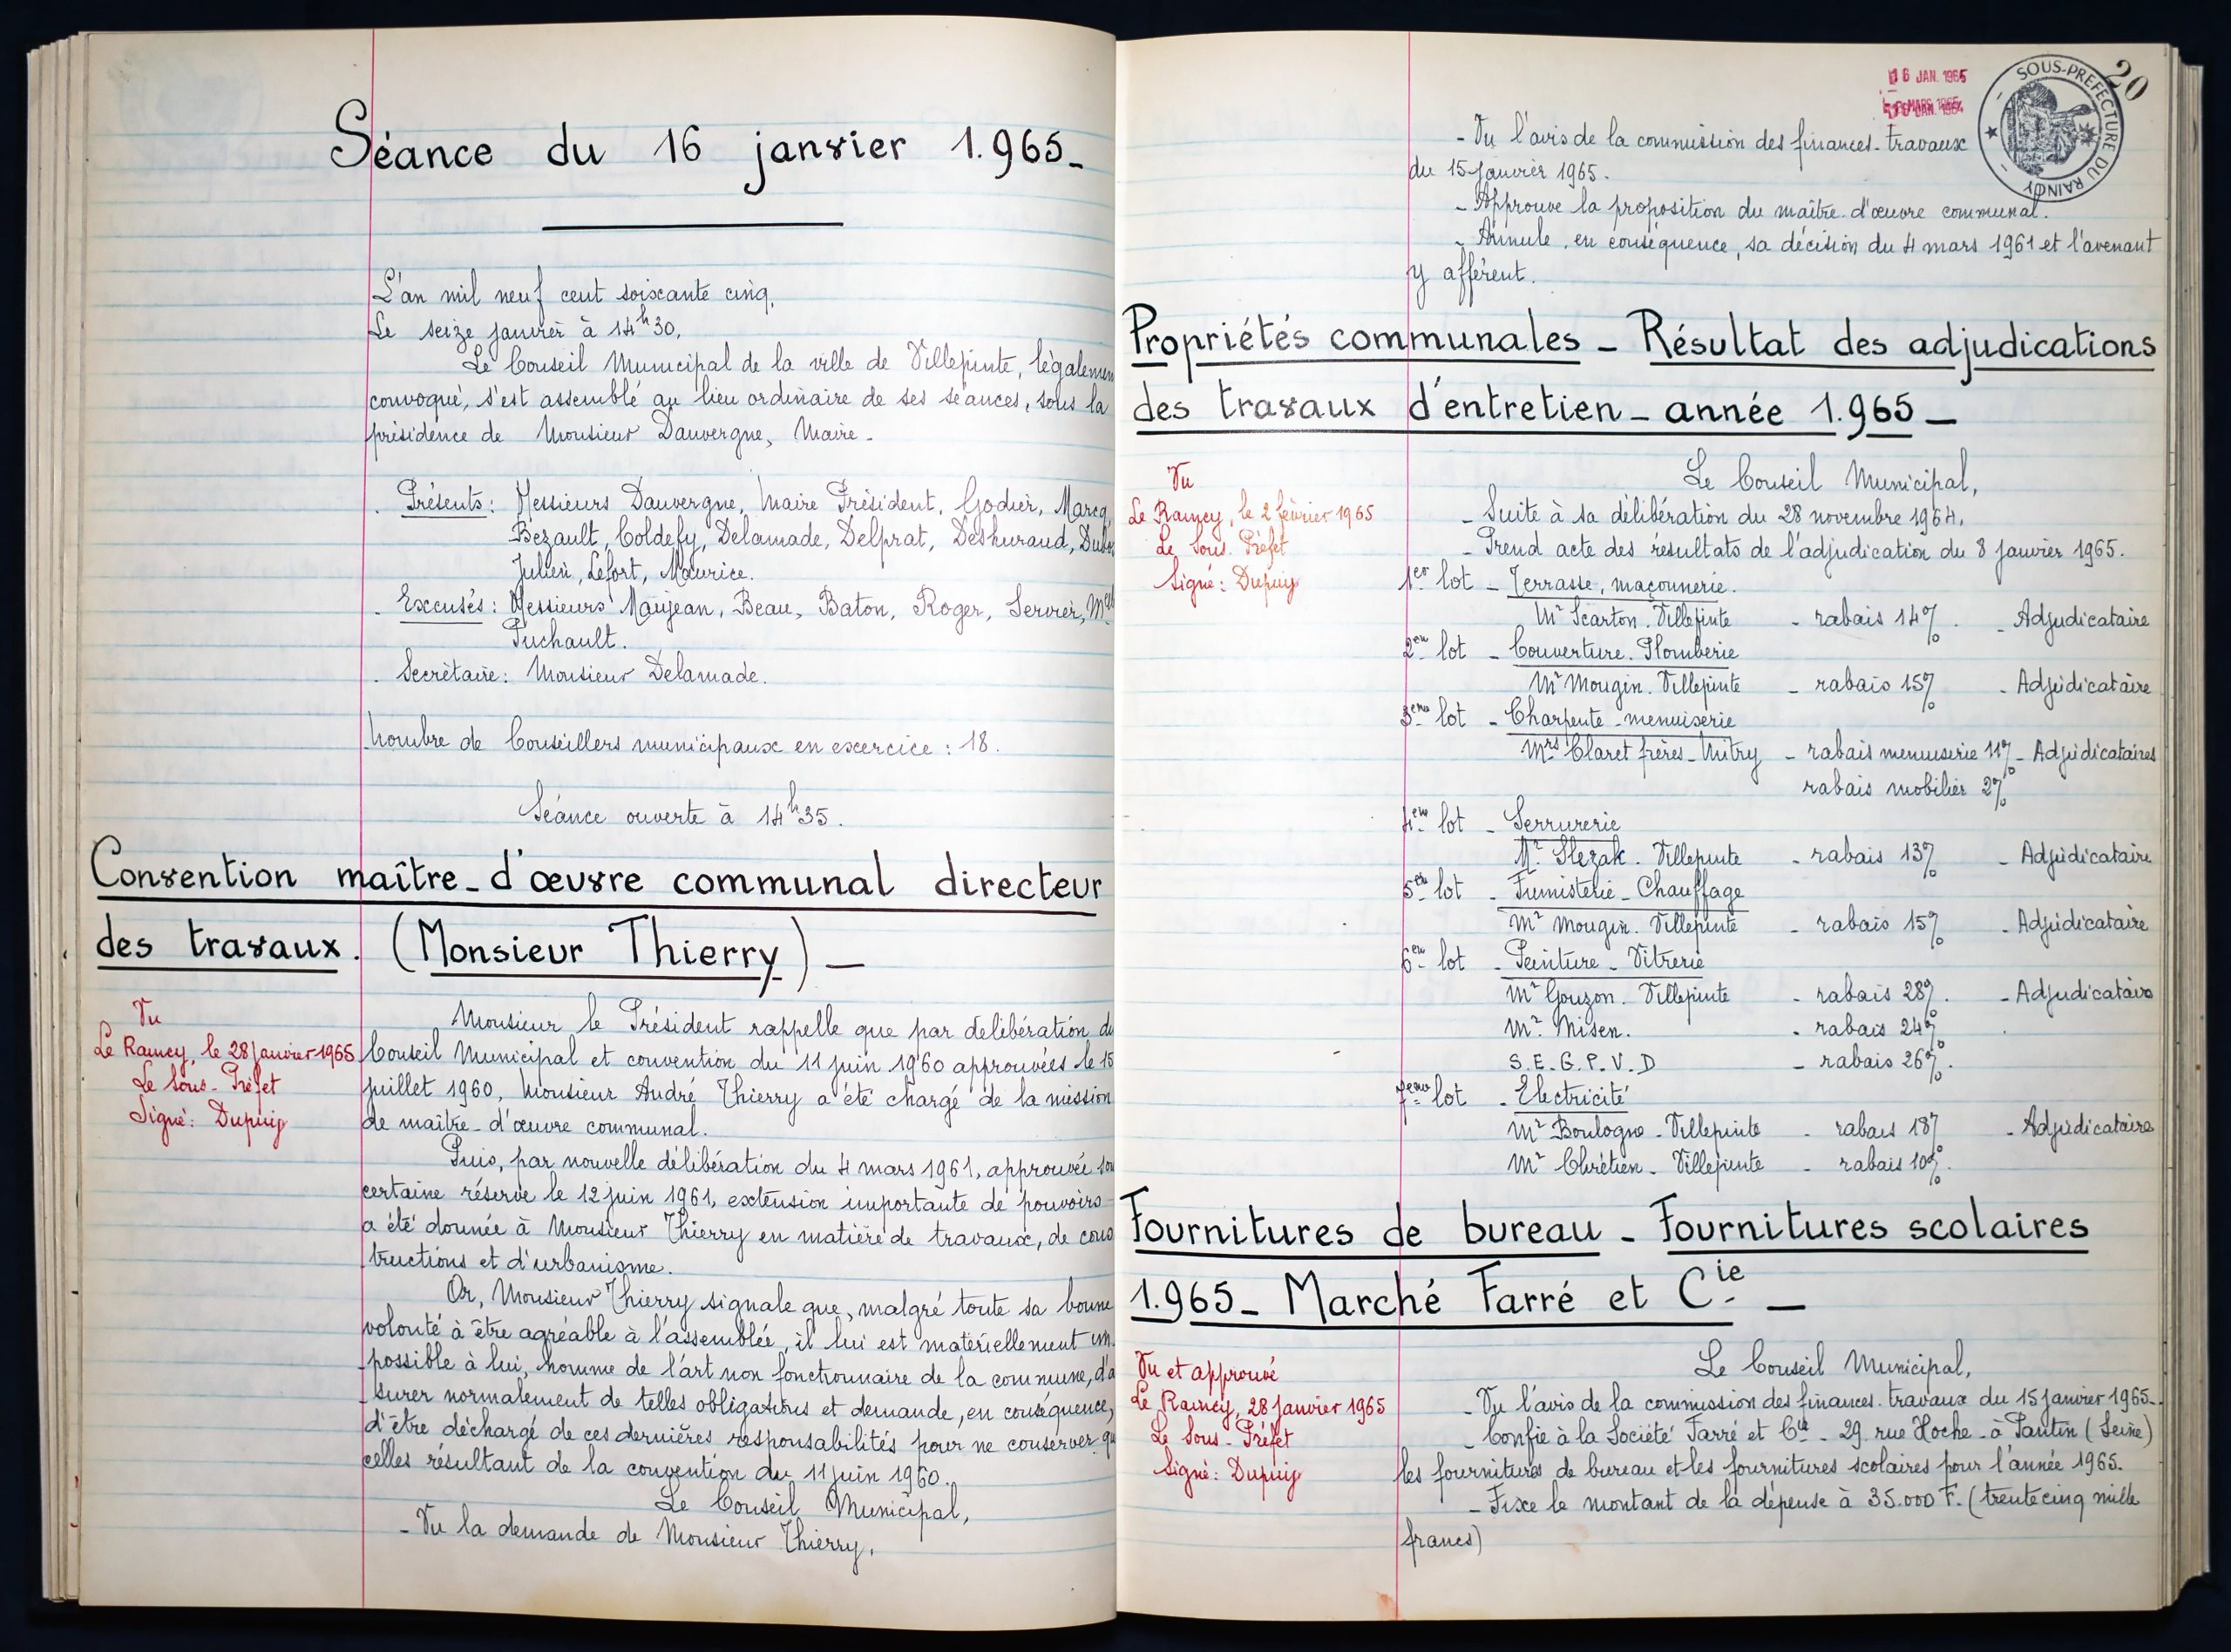 Séance du 16 janvier 1.965_
L'an mil neuf cent soixante cinq,
Le seize janvier à 14h30,
Le Conseil Municipal de la ville de Villepinte, légalemen
convoqué, s'est assemblé au lieu ordinaire de ses séances, sous la
présidence de Monsieur Dauvergne, Maire_
. Présents: Messieurs Dauvergne, Maire Président, Godier, Marcq,
Bezault, Coldefy, Delamade, Delprat, Deshuraud, Dubo
Julien, Lefort, Maurice.
. Excusés: Messieurs Maujean, Beau, Baton, Roger, Servier, Melle
Puchault.
. Secrétaire: Monsieur Delamade.
Nombre de Conseillers municipaux en exercice: 18.
Séance ouverte à 14h35.
Convention maître_d'œuvre communal directeur
des travaux. (Monsieur Thierry)_
Vu
Le Raincy, le 28 janvier 1965
Le Sous-Préfet
Signé: Dupuy
Monsieur le Président rappelle que par délibération du
Conseil Municipal et convention du 11 juin 1960 approuvées le 15
juillet 1960, Monsieur André Thierry a été chargé de la mission
de maître-d'œuvre communal.
Puis, par nouvelle délibération du 4 mars 1961, approuvée sou
certaine réserve le 12 juin 1961, extension importante de pouvoirs
a été donnée à Monsieur Thierry en matière de travaux, de cons
tructions et d'urbanisme.
Or, Monsieur Thierry signale que, malgré toute sa bonne
volonté à être agréable à l'assemblée, il lui est matériellement im
possible à lui, homme de l'art non fonctionnaire de la commune, d'a
surer normalement de telles obligations et demande, en conséquence,
d'être déchargé de ces dernières responsabilités pour ne conserver qu
celles résultant de la convention du 11 juin 1960.
Le Conseil Municipal,
- Vu la demande de Monsieur Thierry,
20
16 JAN. 1965
SOUS-PREFECTURE DU RAINCY
- Vu l'avis de la commission des finances-travaux
du 15 janvier 1965.
- Approuve la proposition du maître-d'œuvre communal.
- Annule, en conséquence, sa décision du 4 mars 1961 et l'avenant
y afférent.
Propriétés communales_Résultat des adjudications
des travaux d'entretien_année 1.965_
Vu
Le Raincy, le 2 février 1965
Le Sous-Préfet
Signé: Dupuy
Le Conseil Municipal,
- Suite à sa délibération du 28 novembre 1964,
- Prend acte des résultats de l'adjudication du 8 janvier 1965.
1er lot - Terrasse, maçonnerie.
Mr Scarton. Villepinte - rabais 14%. - Adjudicataire
2em lot - Couverture. Plomberie
Mr Mougin. Villepinte - rabais 15% - Adjudicataire
3eme lot - Charpente-menuiserie
Mrs Claret frères-Mitry - rabais menuiserie 11% - Adjudicataires
rabais mobilier 2%
4em lot - Serrurerie
Mr Slezak. Villepinte - rabais 13% - Adjudicataire
5em lot - Fumisterie-Chauffage
Mr Mougin. Villepinte - rabais 15% - Adjudicataire
6em lot - Peinture-Vitrerie
Mr Gouzon. Villepinte - rabais 28%. - Adjudicataire
Mr Misen. - rabais 24%
S.E.G.P.V.D - rabais 26%.
7eme lot - Electricité
Mr Boulogne-Villepinte - rabais 18% - Adjudicataire
Mr Chrétien-Villepinte - rabais 10%.
Fournitures de bureau_Fournitures scolaires
1.965_Marché Farré et Cie_
Vu et approuvé
Le Raincy, 28 janvier 1965
Le Sous-Préfet
Signé: Dupuy
Le Conseil Municipal,
- Vu l'avis de la commission des finances-travaux du 15 janvier 1965-
- Confie à la Société Farré et Cie - 29 rue Hoche-à Pantin (Seine)
les fournitures de bureau et les fournitures scolaires pour l'année 1965.
- Fixe le montant de la dépense à 35.000 F. (trente cinq mille
francs)